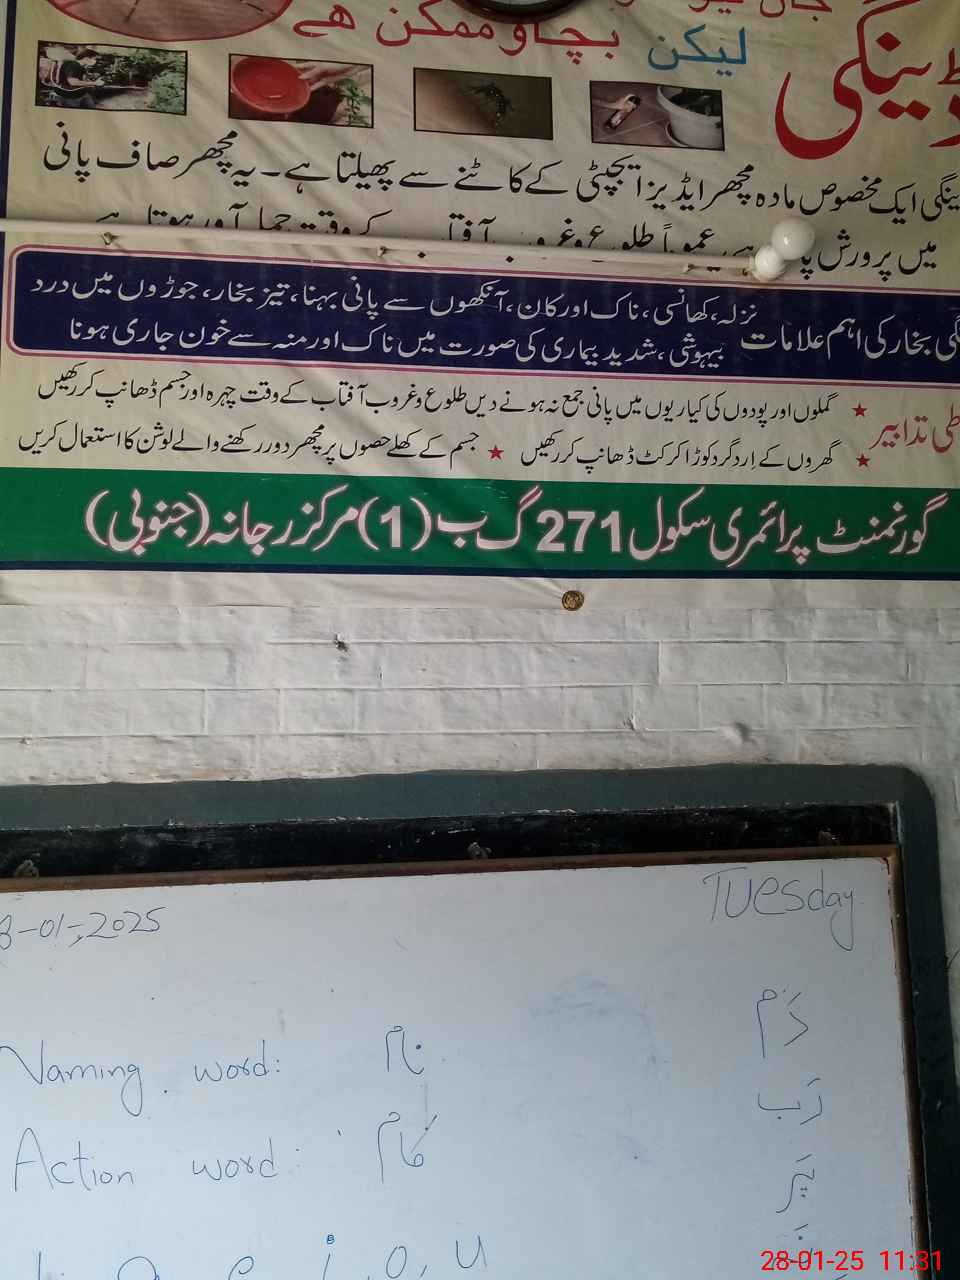 بچاؤ ممکن ہے
لیکن
ڈینگی
ڈینگی ایک مخصوص مادہ مچھر ایڈیز ایجپٹی کے کاٹنے سے پھیلتا ہے۔ یہ مچھر صاف پانی
میں پرورش
بخار کی اہم علامات
نزلہ، کھانسی، ناک اور کان، آنکھوں سے پانی بہنا، تیز بخار، جوڑوں میں درد
بیہوشی، شدید بیماری کی صورت میں ناک اور منہ سے خون جاری ہونا
تدابیر
گملوں اور پودوں کی کیاریوں میں پانی جمع نہ ہونے دیں طلوع و غروب آفتاب کے وقت چہرہ اور جسم ڈھانپ کر رکھیں
گھروں کے اردگرد کوڑا کرکٹ ڈھانپ کر رکھیں ★ جسم کے کھلے حصوں پر مچھر دور رکھنے والے لوشن کا استعمال کریں
گورنمنٹ پرائمری سکول 271 گ ب (1) مرکز رجانہ (جنوبی)
8-01-2025
Tuesday
Naming word: نام
Action word: کام
a e i, o, u
دَم
رَب
28-01-25 11:31